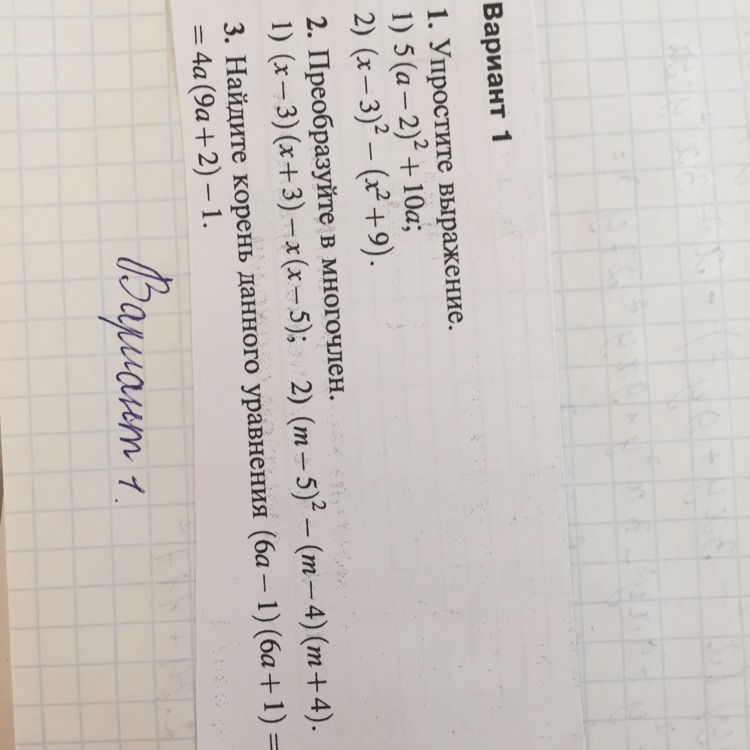 Вариант 1
1. Упростите выражение.
1) 5(a − 2)² + 10a;
2) (x − 3)² − (x² + 9).
2. Преобразуйте в многочлен.
1) (x − 3)(x + 3) − x(x − 5); 2) (m − 5)² − (m − 4)(m + 4).
3. Найдите корень данного уравнения (6a − 1)(6a + 1) =
= 4a(9a + 2) − 1.
Вариант 1.